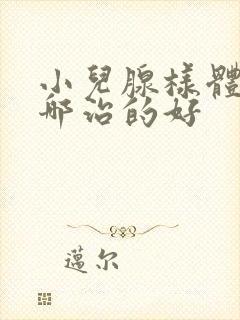 小兒腺樣體
哪治的好
邁尔